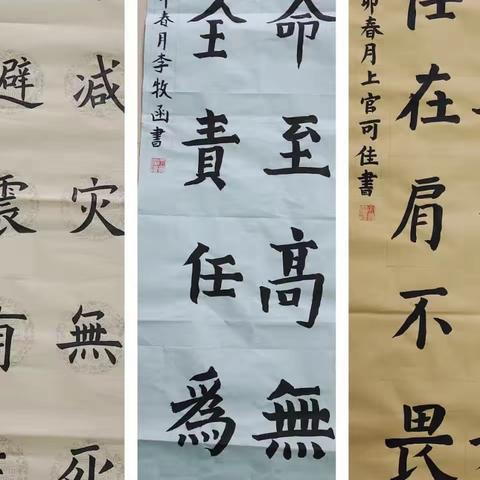 减灾無死
避震有
命至高無
全責任為
卯春月李牧函書
任在肩不畏
卯春月上官可佳書